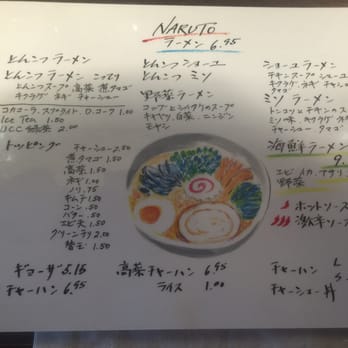 NARUTO
ラーメン 6.95
とんこつ ラーメン
とんこつ ラーメン こってり
とんこつスープ 高菜 煮タマゴ
キクラゲ ネギ チャーシュー
コカコーラ、スプライト、D.コーク 1.50
Ice Tea 1.50
UCC 緑茶 2.00
トッピング
チャーシュー 2.50
煮タマゴ 1.50
高菜 1.50
ネギ 1.00
ノリ .75
キムチ 1.50
コーン .50
バター .50
エビ天 1.50
グリーンチリ 2.00
替玉 1.50
ギョーザ 5.15
チャーハン 6.95
とんこつ ショーユ
とんこつ ミソ
野菜ラーメン
キャベツ、白菜、ニンジン
モヤシ
高菜チャーハン 6.95
ライス 1.00
ショーユラーメン
チキンスープ ショーユ
キクラゲ ネギ チャー
ミソ ラーメン
トンコツとチキンのス
ミソ味、キクラゲ ネギ
チャーシュー タマゴ
海鮮ラーメン
エビ イカ アサリ
野菜
ホットソース
激辛ソー
チャーハン L
チャーシュー丼 S